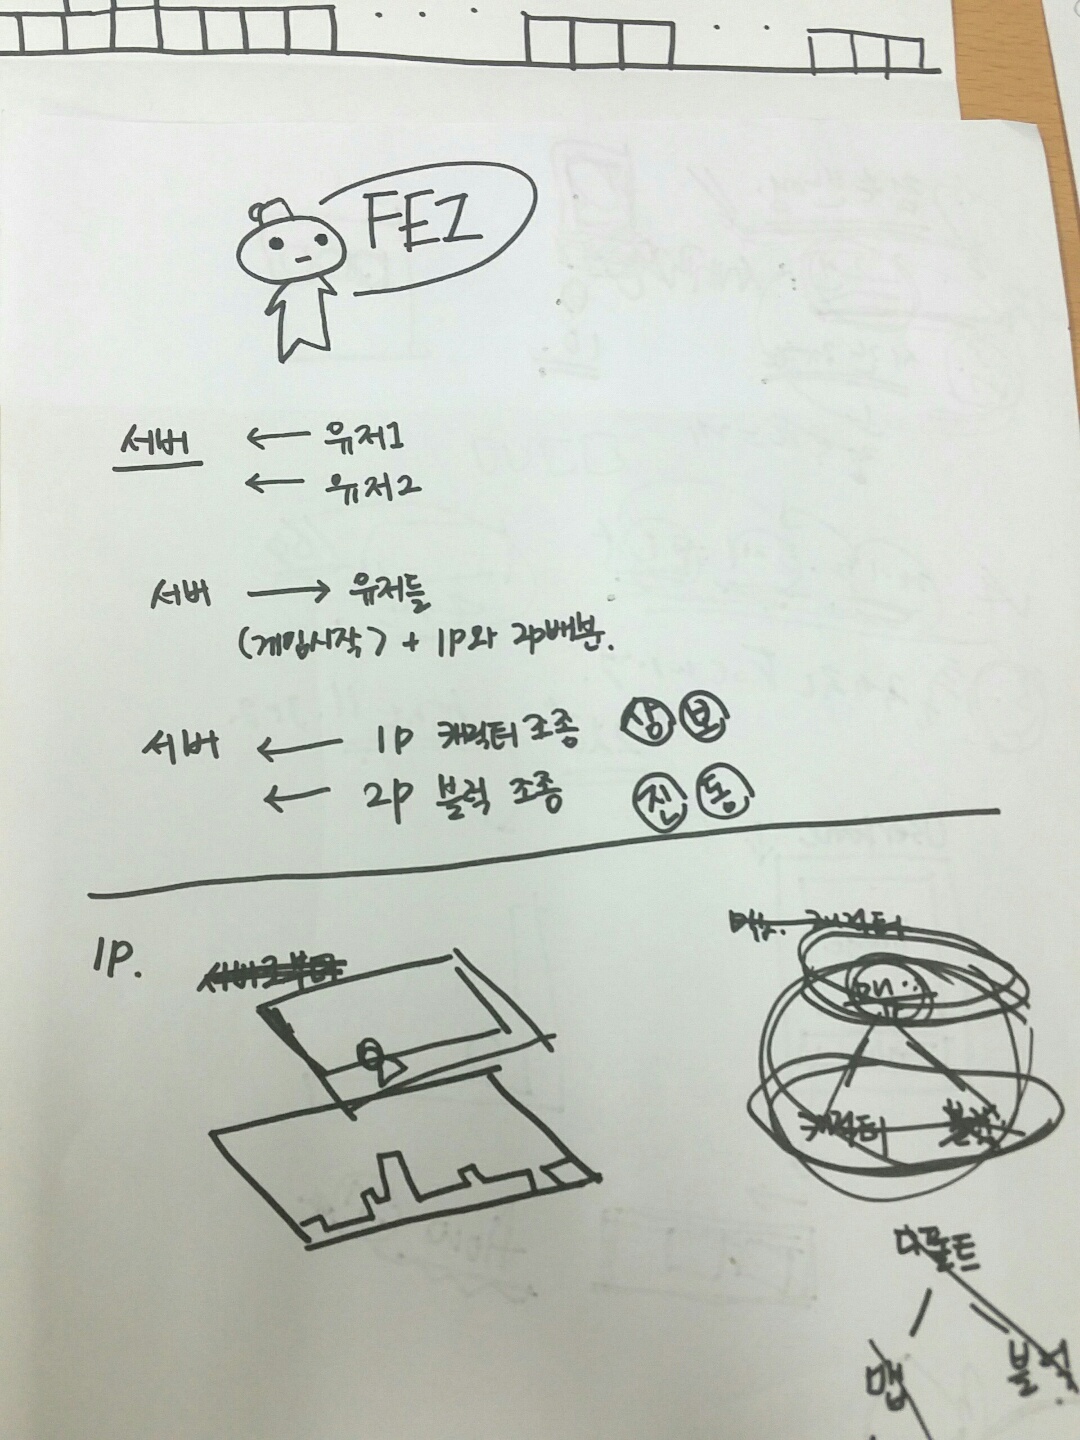 FEZ
서버 ← 유저1
← 유저2
서버 → 유저들
(게임시작) + 1P와 2P배분.
서버 ← 1P 캐릭터 조종 상 보
← 2P 블럭 조종 진 동
1P.
서버로부터
캐릭터
캐릭터 블럭
디폴트
맵 블럭